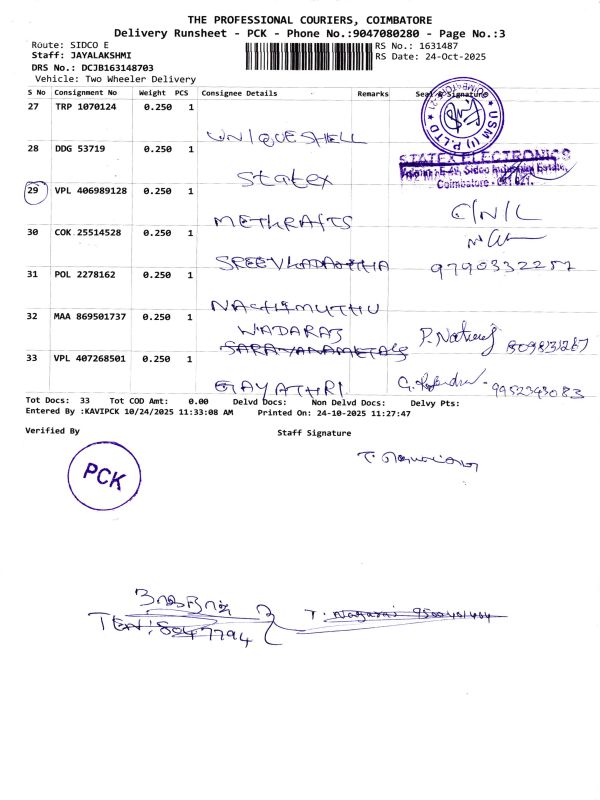 THE PROFESSIONAL COURIERS, COIMBATORE
Delivery Runsheet - PCK - Phone No.:9047080280 - Page No.:3
Route: SIDCO E
RS No.: 1631487
Staff: JAYALAKSHMI
RS Date: 24-Oct-2025
DRS No.: DCJB163148703
Vehicle: Two Wheeler Delivery
S No Consignment No Weight PCS Consignee Details Remarks Seal & Signature
27 TRP 1070124 0.250 1
UNIQUESHELL
USM (I) P LTD
28 DDG 53719 0.250 1
Statex
STATEX ELECTRONICS
E-49, Sidco Industrial Estate,
Coimbatore - 641 021.
29 VPL 406989128 0.250 1
METKRAFTS
C/N/L
30 COK 25514528 0.250 1
9790332257
31 POL 2278162 0.250 1
NACHIMUTHU
32 MAA 869501737 0.250 1
SARAVANAMETALS
33 VPL 407268501 0.250 1
GAYATHRI
9952393083
Tot Docs: 33 Tot COD Amt: 0.00 Delvd Docs: Non Delvd Docs: Delvy Pts:
Entered By :KAVIPCK 10/24/2025 11:33:08 AM Printed On: 24-10-2025 11:27:47
Verified By
Staff Signature
PCK